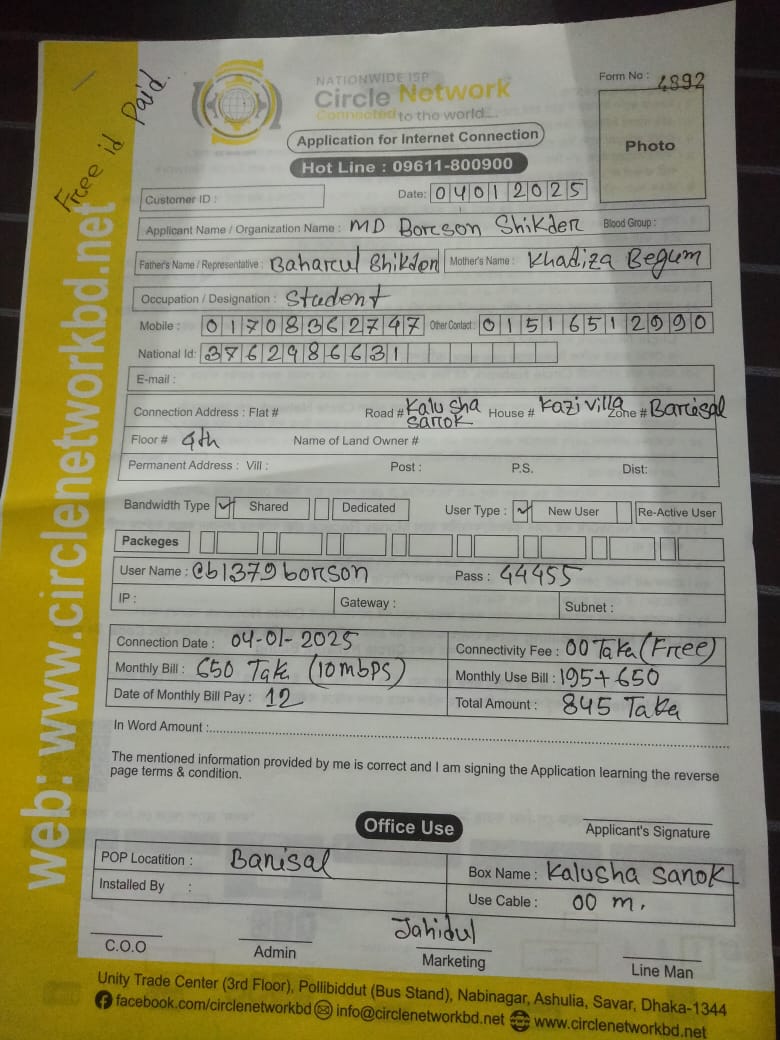 Free id Paid.
NATIONWIDE ISP
Circle Network
Connected to the world...
Form No : 4892
Photo
Application for Internet Connection
Hot Line : 09611-800900
Customer ID :
Date: 04012025
Applicant Name / Organization Name : MD Borcson Shikder Blood Group :
Father's Name / Representative : Baharcul Shikder Mother's Name : Khadiza Begum
Occupation / Designation : Student
Mobile : 01708362747 Other Contact : 01516512990
National Id: 3762986631
E-mail :
Connection Address : Flat # Road # Kalu sha sarrok House # Kazi villa Zone # Barcisal
Floor # 4th Name of Land Owner #
Permanent Address : Vill : Post : P.S. Dist:
Bandwidth Type Shared Dedicated User Type : New User Re-Active User
Packeges
User Name : @b1379borson Pass : 44455
IP : Gateway : Subnet :
Connection Date : 04-01-2025 Connectivity Fee : 00 Taka (Free)
Monthly Bill : 650 Tak (10mbps) Monthly Use Bill : 195+650
Date of Monthly Bill Pay : 12 Total Amount : 845 Taka
In Word Amount :
The mentioned information provided by me is correct and I am signing the Application learning the reverse
page terms & condition.
Applicant's Signature
Office Use
POP Locatition : Barisal Box Name : Kalusha Sarrok
Installed By : Use Cable : 00 m.
C.O.O Admin Jahidul Marketing Line Man
Unity Trade Center (3rd Floor), Pollibiddut (Bus Stand), Nabinagar, Ashulia, Savar, Dhaka-1344
facebook.com/circlenetworkbd info@circlenetworkbd.net www.circlenetworkbd.net
web: www.circlenetworkbd.net